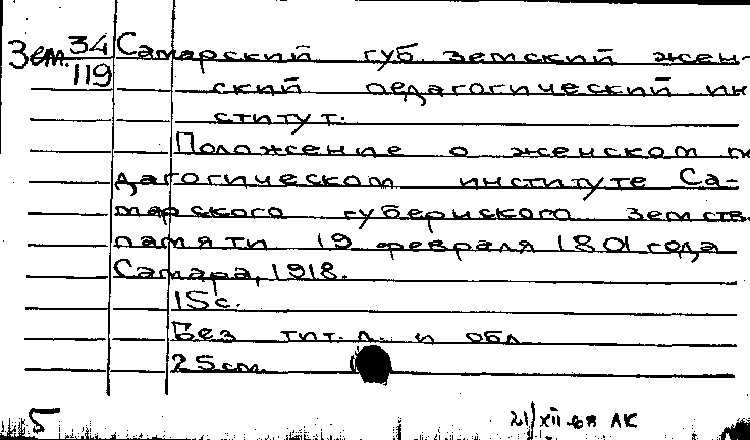 Зем. 34/119 Самарский губ. земский жен-
ский педагогический ин-
ститут.
Положение о женском пе
дагогическом институте Са-
марского губернского земств.
памяти 19 февраля 1801 года
Самара, 1918.
15с.
Без тит. л. и обл
25см.
5
21/XII АК